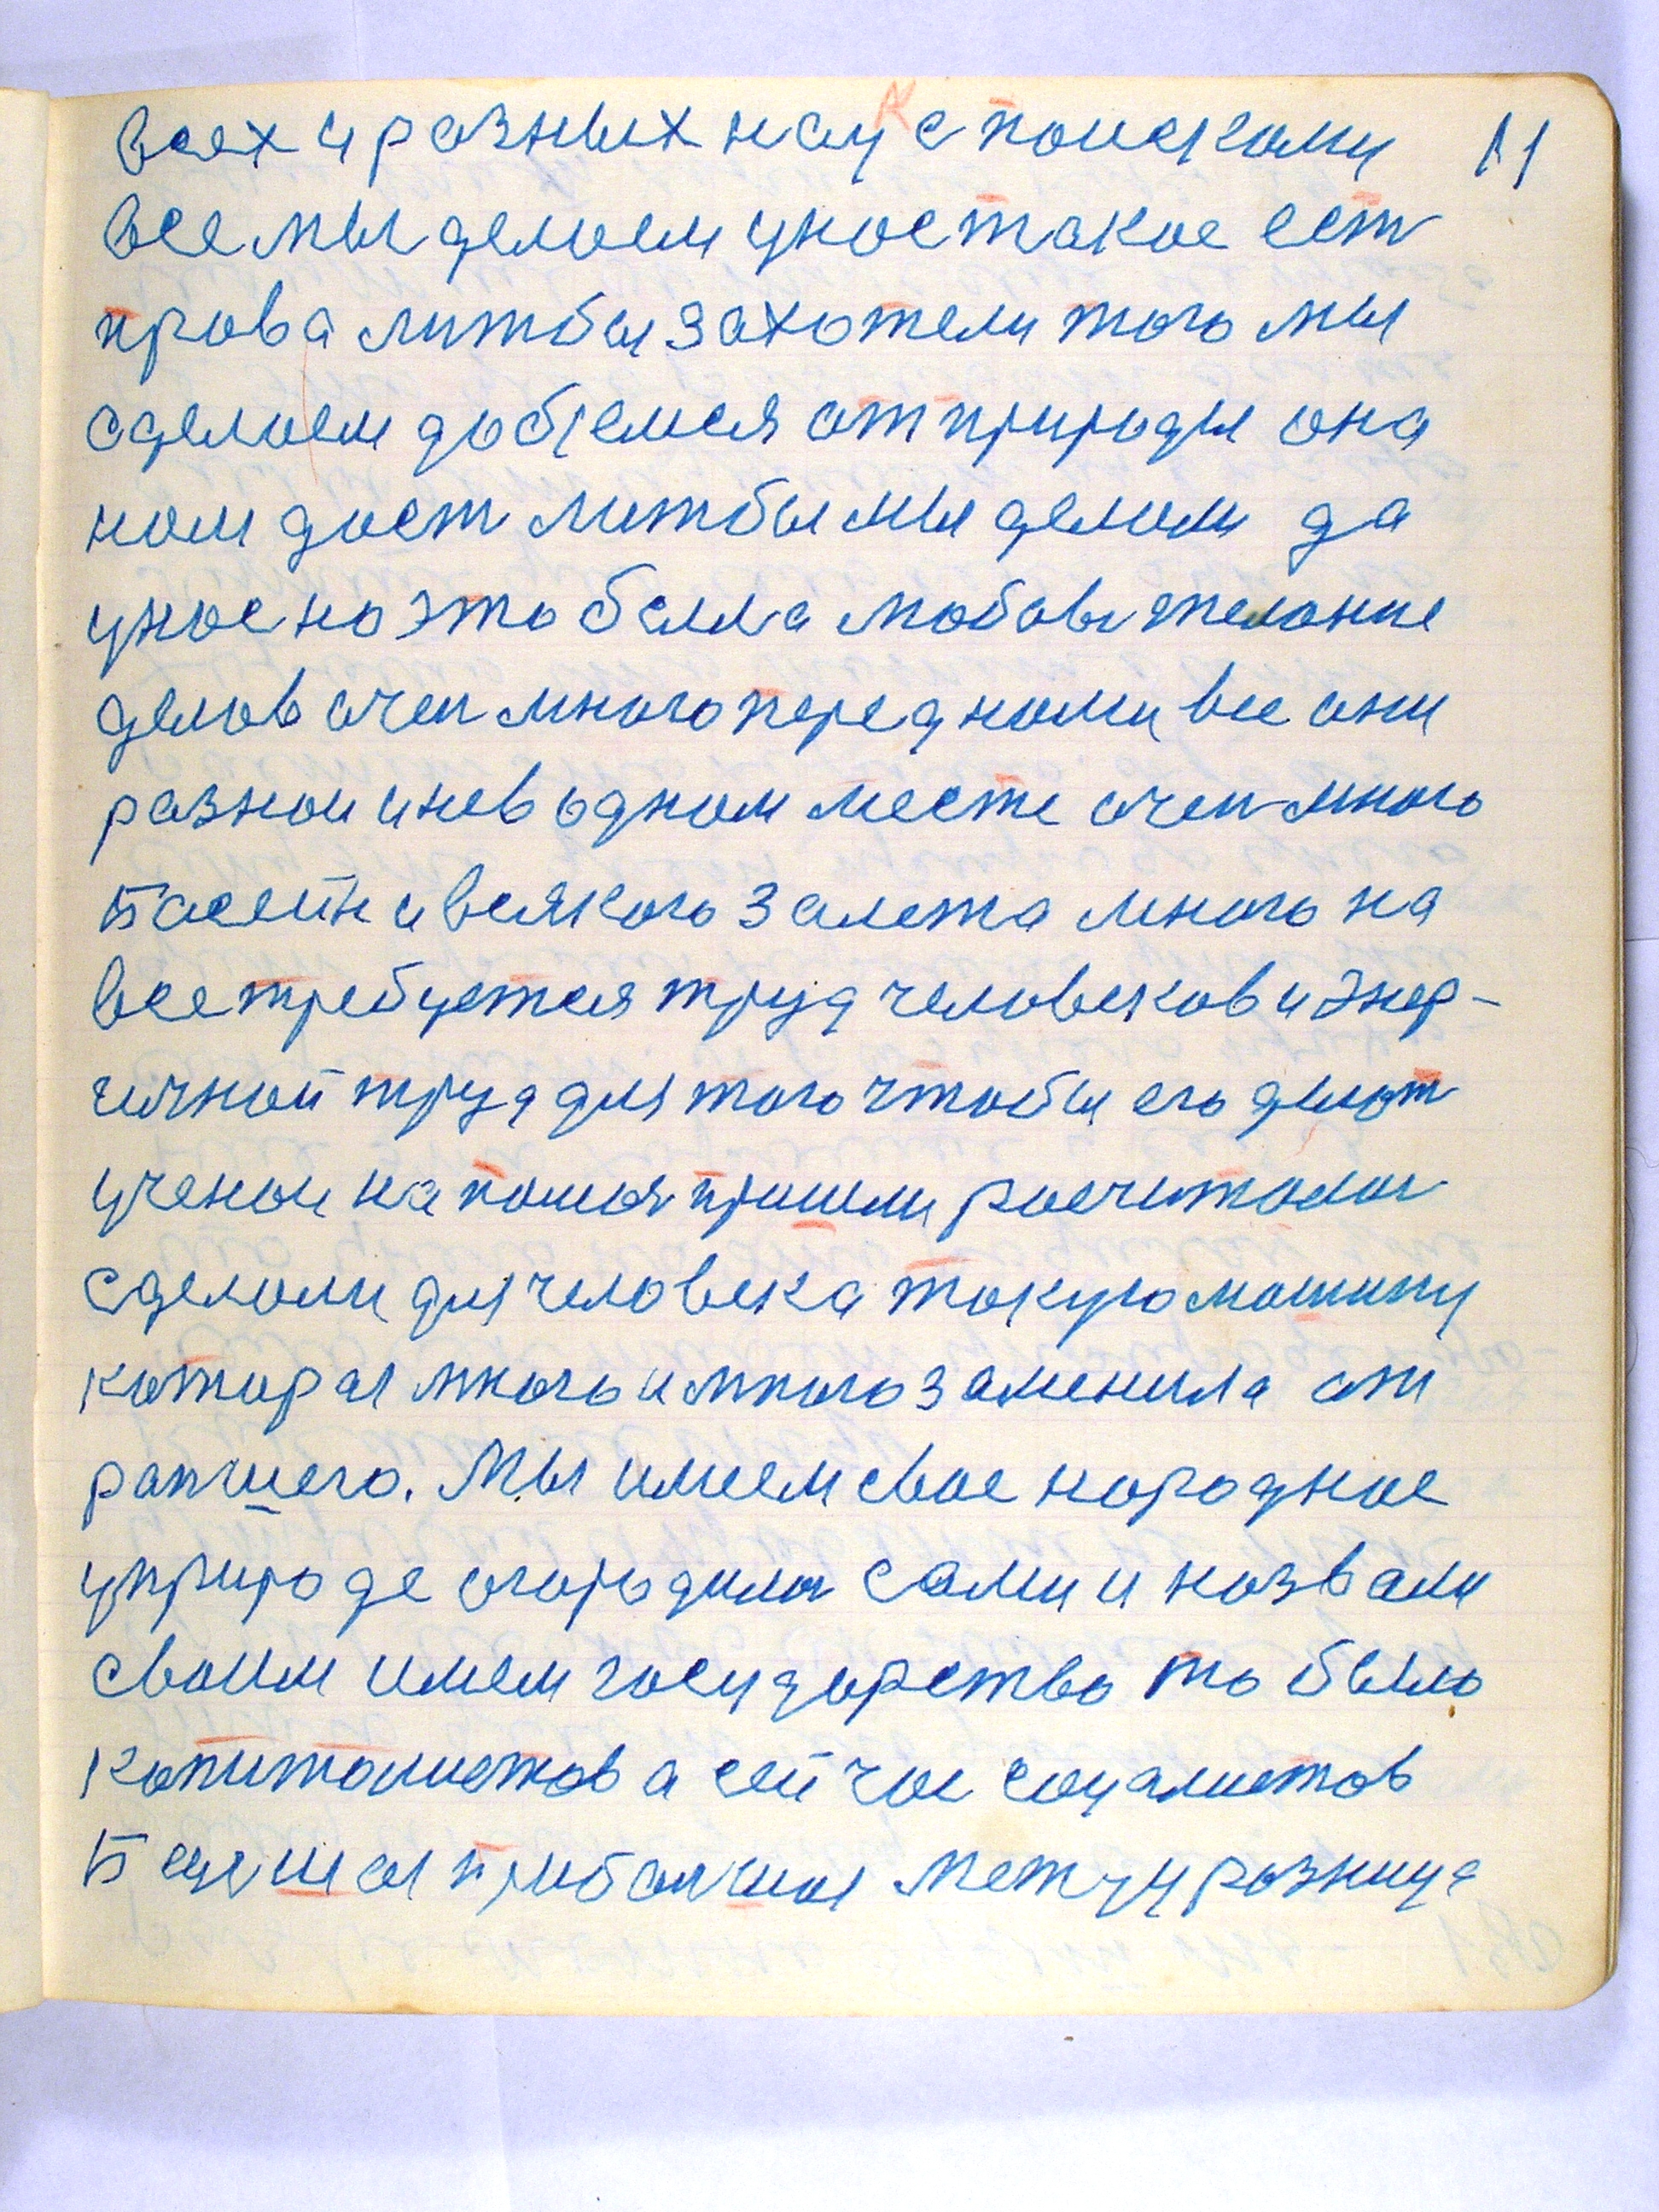 всех и разных наук с поисками 11
все мы делаем унас такое ест
права литбы захотели того мы
сделаем добiемся от природы она
нам даст литбы мы делали да
унас на это была любовь желание
делов очен много перед нами все они
разнои и не в одном месте очен много
Басейн и всякого залета много на
все требуется труд человеков и энер-
гичной труд для того чтобы его делат
ученои на помоч пришли расчитали
сделали для человека такую машину
которая много и много заменила от
ранчшего. Мы имеем свое народное
уприроде огородили сами и назвали
своим имем государство то было
капиталистов а сейчас соцалистов
Бальшая прибольшая между разница